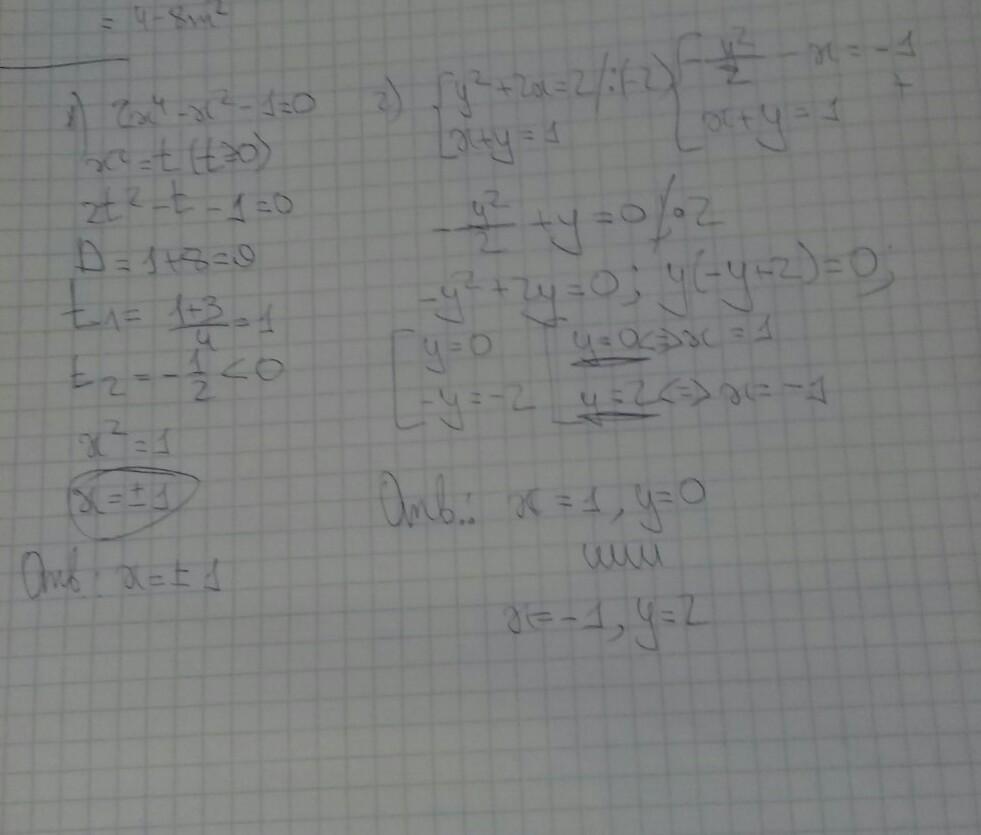 = 4-8m²
1) 2x⁴-x²-1=0
x²=t (t≥0)
2t²-t-1=0
D=1+8=9
t₁= (1+3)/4 =1
t₂=-1/2<0
x²=1
x=±1
Отв: x=±1
2) { y²+2x=2 /:(-2) { -y²/2 - x=-1
{ x+y=1 { x+y=1 +
-y²/2 +y=0 /·2
-y²+2y=0; y(-y+2)=0;
[ y=0 [ y=0<=>x=1
[ -y=-2 [ y=2<=>x=-1
Отв.: x=1, y=0
или
x=-1, y=2